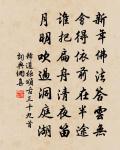 新年佛法答雲無
舍得依前在半途
誰把扁舟清夜笛
月明吹過洞庭湖
釋道樞頌古三十九首